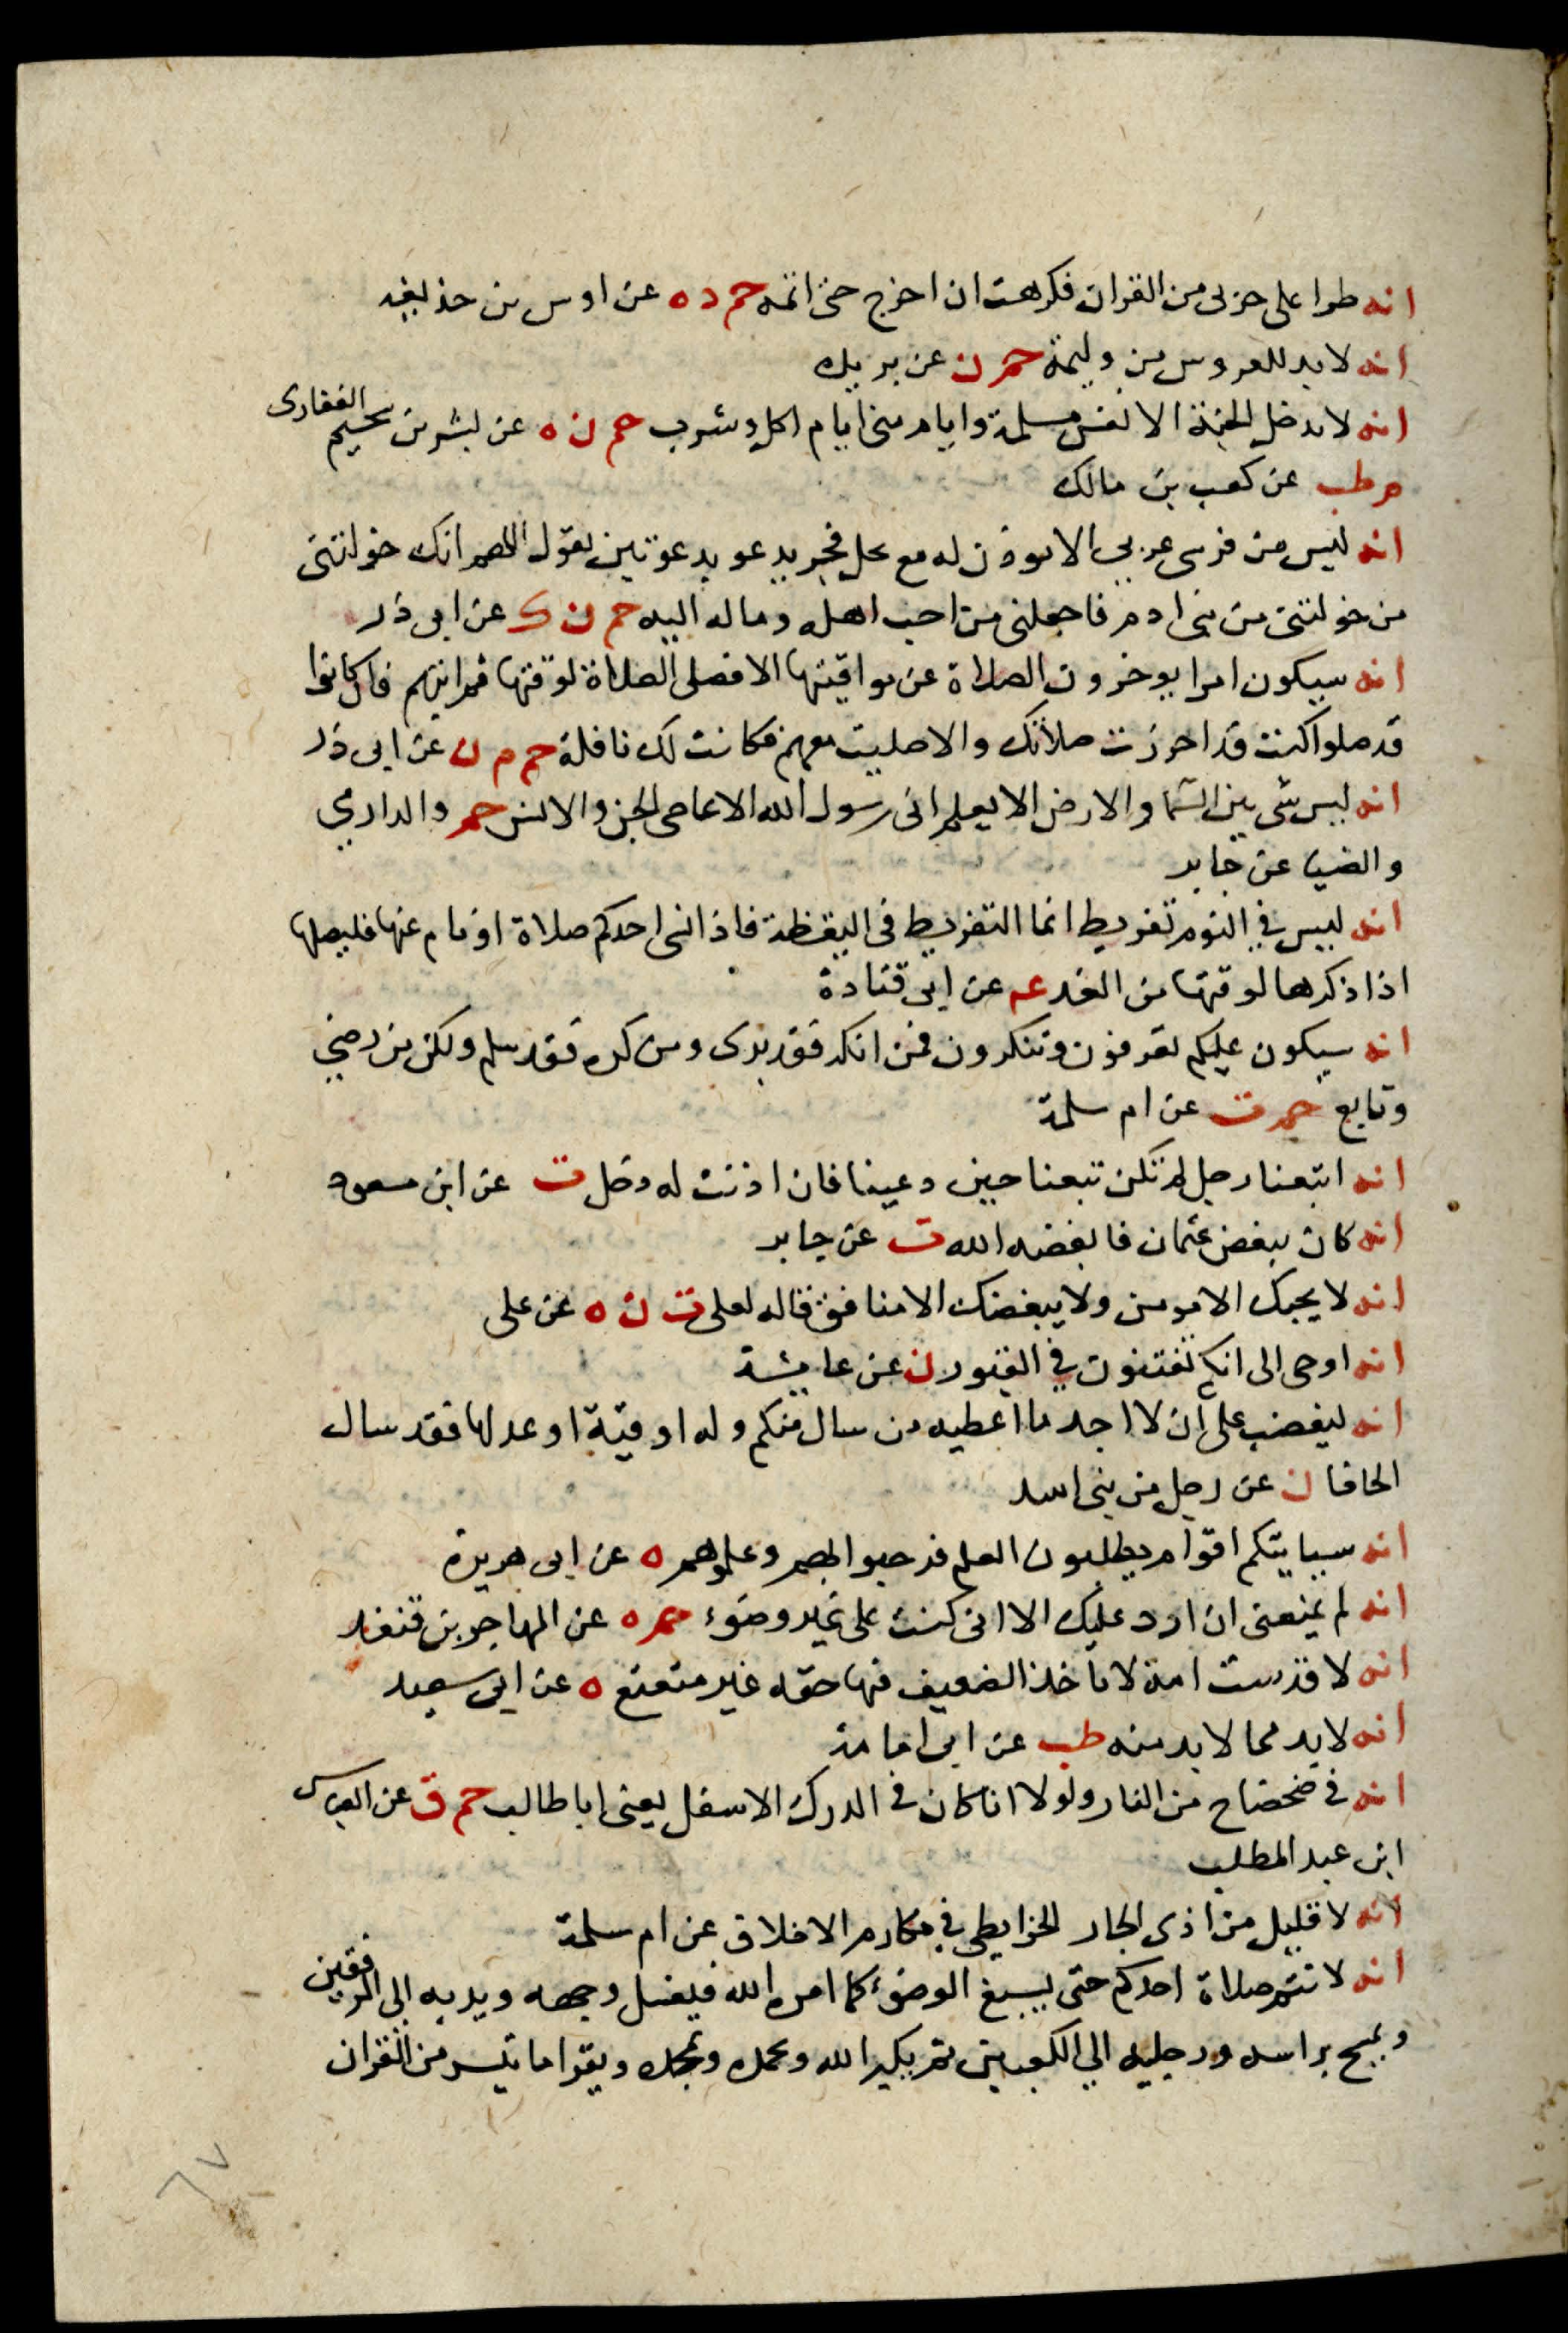 انه طرا على حزبى من القران فكرهت ان اخرج حتى اتمه حم د ه عن اوس بن حذيفه
انه لا بد للعروس من وليمة حم ن عن بريده
انه لا يدخل الجنة الا نفس مسلمة وايام منى ايام اكل وشرب حم ن ه عن بشر بن سحيم الغفارى
م طب عن كعب بن مالك
انه ليس من فرس عربى الا يوذن له مع كل فجر يدعو بدعوتين يقول اللهم انك خولتنى
من خولتنى من بنى ادم فاجعلنى من احب اهله وماله اليه حم ن ك عن ابى ذر
انه سيكون امرا يوخرون الصلاة عن مواقيتها الا فصلى الصلاة لوقتها ثم ايتهم فان كانوا
قد صلوا كنت قد احرزت صلاتك والا صليت معهم فكانت لك نافلة حم م ن عن ابى ذر
انه ليس شى بين السما والارض الا يعلم انى رسول الله الا عاصى الجن والانس حم والدارمي
والضيا عن جابر
انه ليس في النوم تفريط انما التفريط فى اليقظة فاذا نسى احدكم صلاة او نام عنها فليصلها
اذا ذكرها لوقتها من الغد عه عن ابى قتادة
انه سيكون عليكم تعرفون وتنكرون فمن انكر فقد برى ومن كره فقد سلم ولكن من رضي
وتابع حم ت عن ام سلمة
انه اتبعنا رجل لم تكن تبعنا حين دعينا فان اذنت له دخل ت عن ابن مسعود
انه كان يبغض عثمان فابغضه الله ت عن جابر
انه لا يحبك الا مومن ولا يبغضك الا منافق قاله لعلى ت ن ه عن على
انه اوحى الى انكم تفتنون في القبور ن عن عايشة
انه ليغضب على ان لا اجد ما اعطيه من سال منكم وله اوقية او عدلها فقد سال
الحافا ن عن رجل من بنى اسد
انه سياتيكم اقوام يطلبون العلم فرحبوا بهم وعلموهم ه عن ابى هريرة
انه لم يمنعنى ان ارد عليك الا انى كنت على غير وضوء حم ه عن المهاجر بن قنفد
انه لا قدست امة لا ياخذ الضعيف فيها حقه غير متعتع ه عن ابى سعيد
انه لا بد مما لا بد منه طب عن ابى امامة
انه فى ضحضاح من النار ولولا انا كان فى الدرك الاسفل يعنى ابا طالب حم ق عن العباس
ابن عبد المطلب
انه لا قليل من اذى الجار الخرايطى في مكارم الاخلاق عن ام سلمة
انه لا تتم صلاة احدكم حتى يسبغ الوضوء كما امره الله فيغسل وجهه ويديه الى المرفقين
ويمسح براسه ورجليه الي الكعبين ثم يكبر الله ويحمده ويمجده ويقرا ما تيسر من القران
٦٧